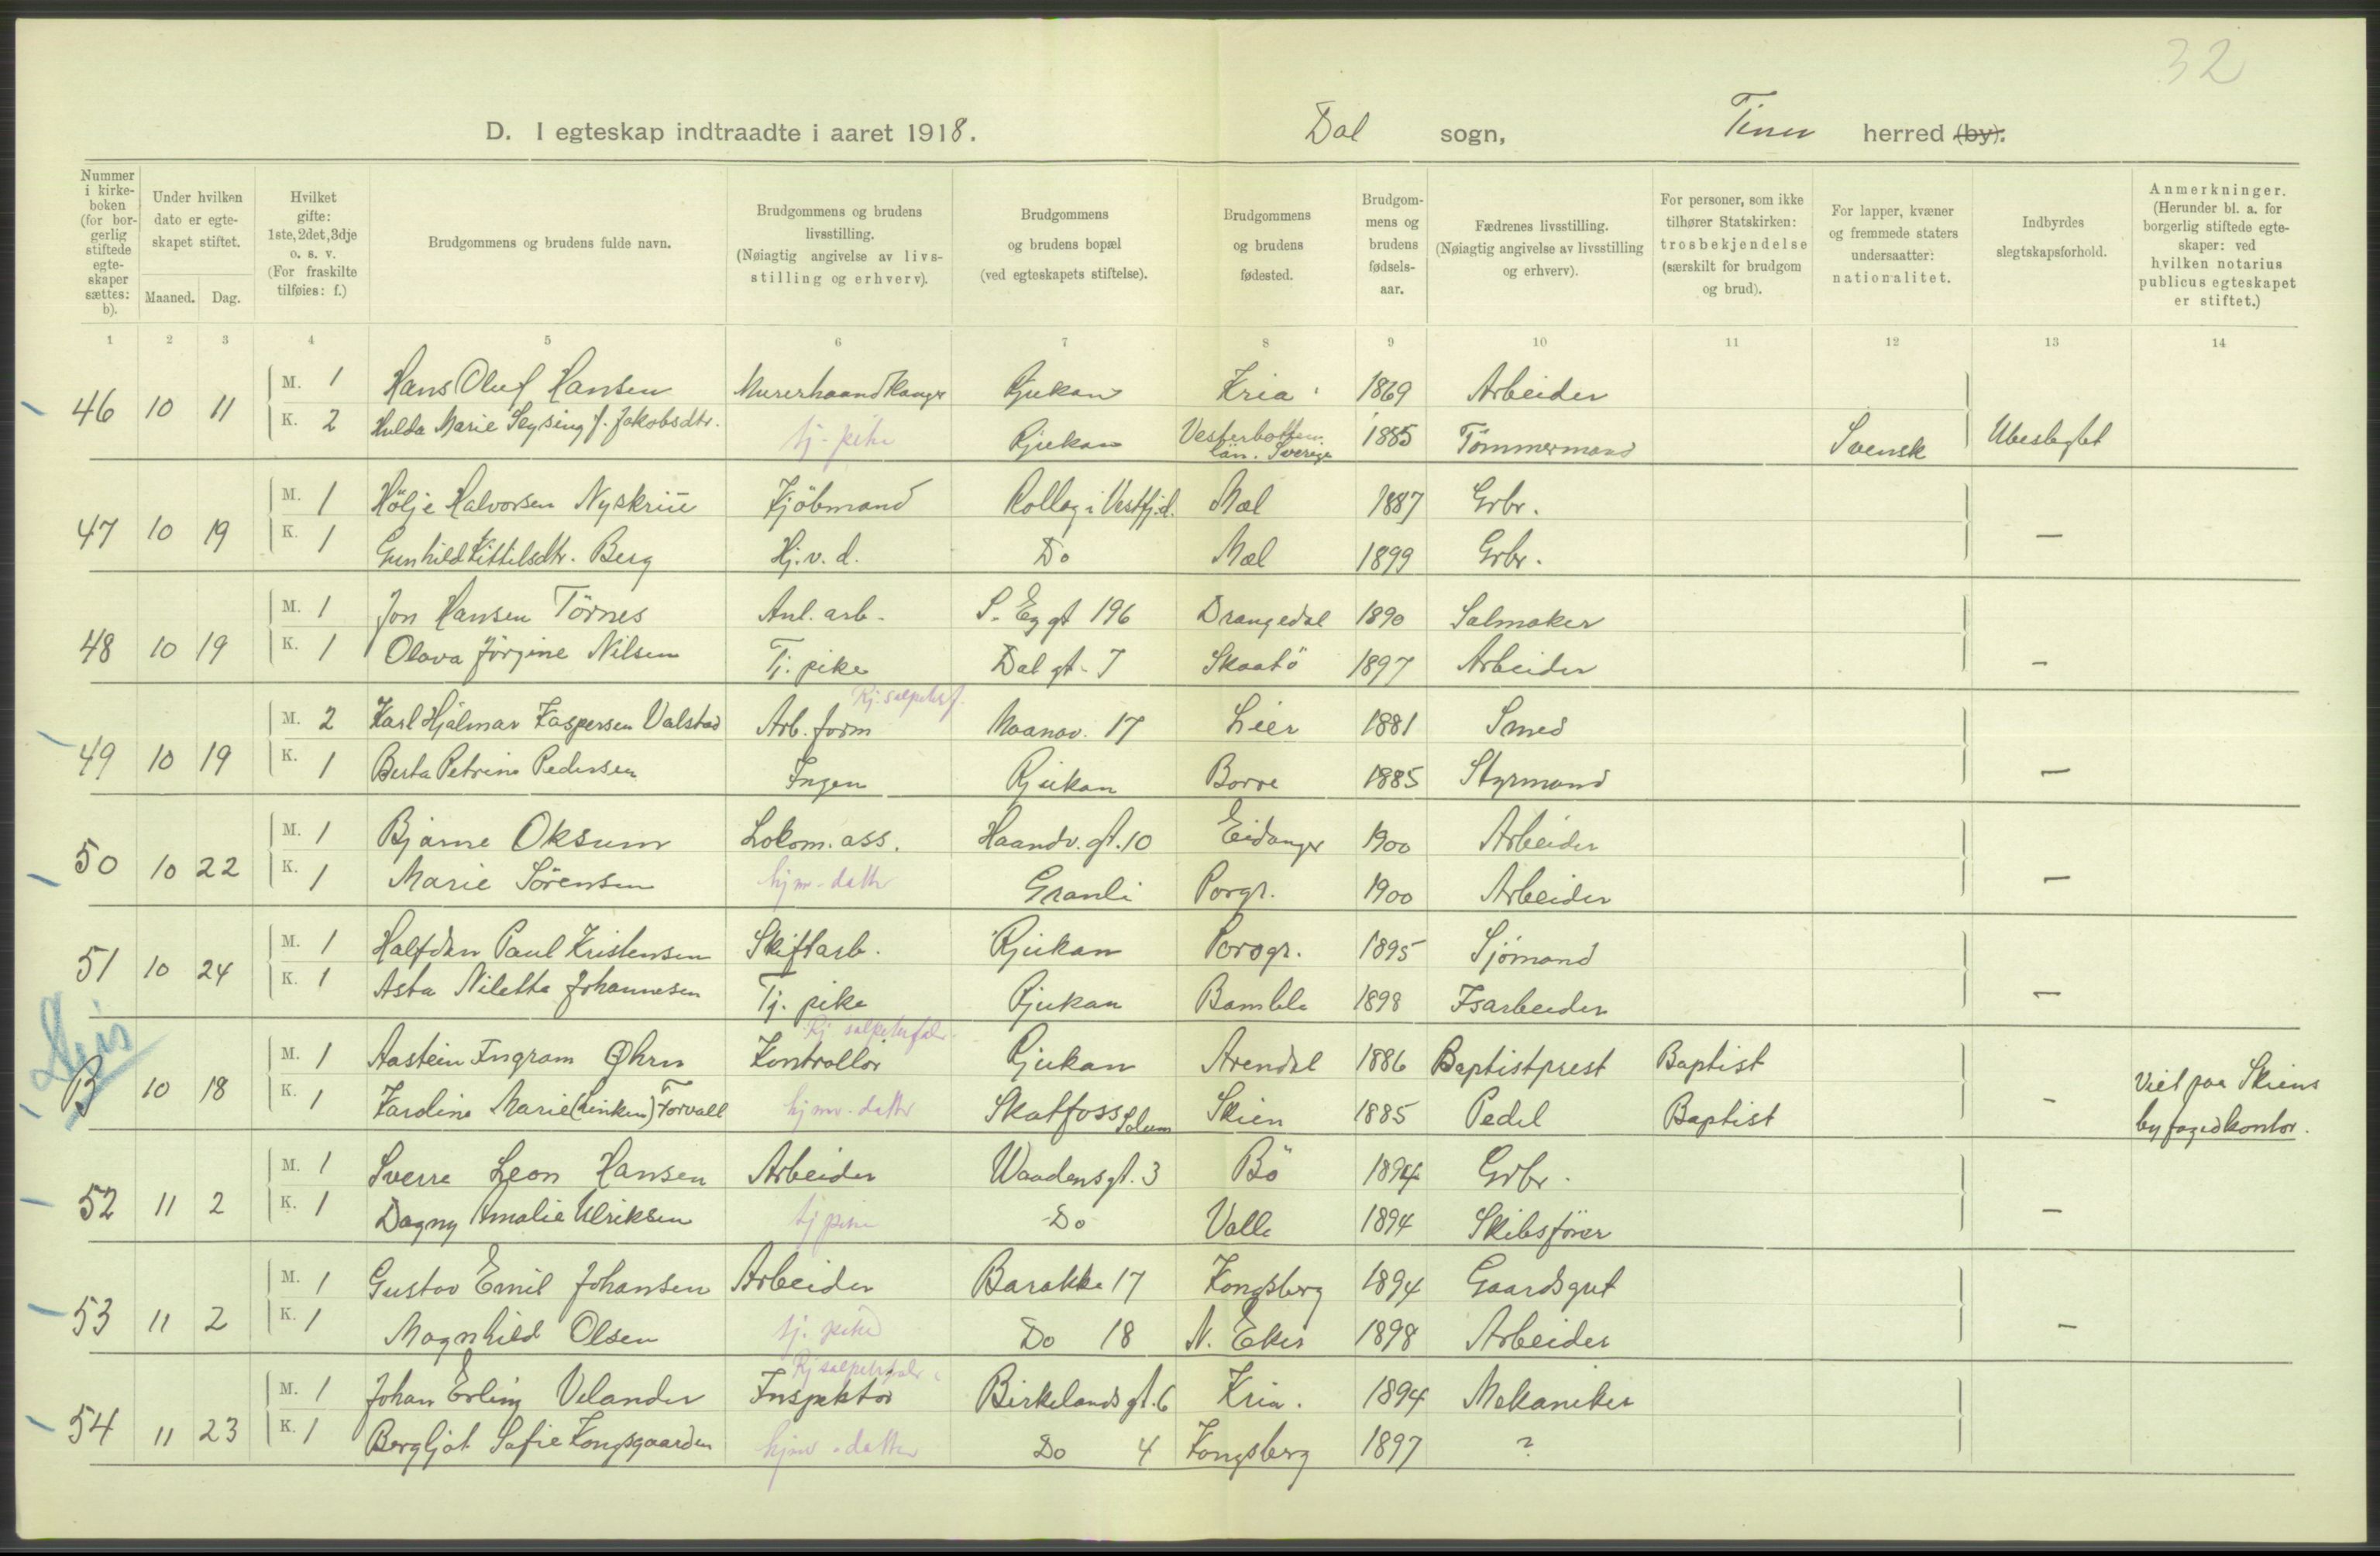 32
D. I egteskap indtraadte i aaret 1918. Dal sogn, Tinn herred (by).
Nummer i kirkeboken (for borgerlig stiftede egteskaper sættes: b).
Under hvilken dato er egteskapet stiftet.
Maaned. Dag.
Hvilket gifte: 1ste, 2det, 3dje o. s. v. (For fraskilte tilføies: f.)
Brudgommens og brudens fulde navn.
Brudgommens og brudens livsstilling. (Nøiagtig angivelse av livsstilling og erhverv).
Brudgommens og brudens bopæl (ved egteskapets stiftelse).
Brudgommens og brudens fødested.
Brudgommens og brudens fødselsaar.
Fædrenes livsstilling. (Nøiagtig angivelse av livsstilling og erhverv).
For personer, som ikke tilhører Statskirken: trosbekjendelse (særskilt for brudgom og brud).
For lapper, kvæner og fremmede staters undersaatter: nationalitet.
Indbyrdes slegtskapsforhold.
Anmerkninger. (Herunder bl. a. for borgerlig stiftede egteskaper: ved hvilken notarius publicus egteskapet er stiftet.)
1 2 3 4 5 6 7 8 9 10 11 12 13 14
46 10 11 M. 1 Hans Oluf Hansen Murerhaandlanger Rjukan Kria 1869 Arbeider
K. 2 Hulda Marie f. Jakobsdtr. tj-pike Rjukan Vesterbotten län. Sverige 1885 Tömmermand Svensk Ubeslegtet
47 10 19 M. 1 Hölje Halvorsen Nyskriu Kjöbmand Rollag i Vestfj.d. Mæl 1887 Grbr.
K. 1 Gunhild Kittilsdtr. Berg Hj. v. d. Do Mæl 1899 Grbr. —
48 10 19 M. 1 Jon Hansen Törnes Anl. arb. S. Eggt 196 Drangedal 1890 Salmaker
K. 1 Olava Jörgine Nilsen Tj. pike Dal gt. 7 Skaatö 1897 Arbeider —
49 10 19 M. 2 Karl Hjalmar Kaspersen Valstad Arb. form Rj. salpeterf. Maanav. 17 Lier 1881 Smed
K. 1 Berta Petrine Pedersen Ingen Rjukan Borre 1885 Styrmand —
50 10 22 M. 1 Bjarne Oksum Lokom. ass. Haandv. gt. 10 Eidanger 1900 Arbeider
K. 1 Marie Sörensen hjmv-datter Granli Porgr. 1900 Arbeider —
51 10 24 M. 1 Halfdan Paul Kristensen Skiftarb. Rjukan Porsgr. 1895 Sjömand
K. 1 Asta Nilette Johannesen Tj. pike Rjukan Bamble 1898 Isarbeider —
B 10 18 M. 1 Aastein Ingram Øhrn Kontrollör Rj salpeterfabr. Rjukan Arendal 1886 Baptistprest Baptist
K. 1 Karoline Marie (Linken) Torvall hjmv-datter Skotfoss Solum Skien 1885 Pedel Baptist — Viet paa Skiens byfogedkontor.
52 11 2 M. 1 Sverre Leon Hansen Arbeider Waadensgt. 3 Bö 1894 Grbr.
K. 1 Dagny Amalie Ulriksen tj pike Do Valle 1894 Skibsförer —
53 11 2 M. 1 Gustav Emil Johansen Arbeider Barakke 17 Kongsberg 1894 Gaardsgut
K. 1 Magnhild Olsen tj. pike Do 18 N. Eker 1898 Arbeider —
54 11 23 M. 1 Johan Erling Velander Inspektör Rj salpeterfabr. Birkelands gt. 6 Kria. 1894 Mekaniker
K. 1 Bergljot Sofie Kongsgaarden hjmv-datter Do 4 Kongsberg 1897 ?